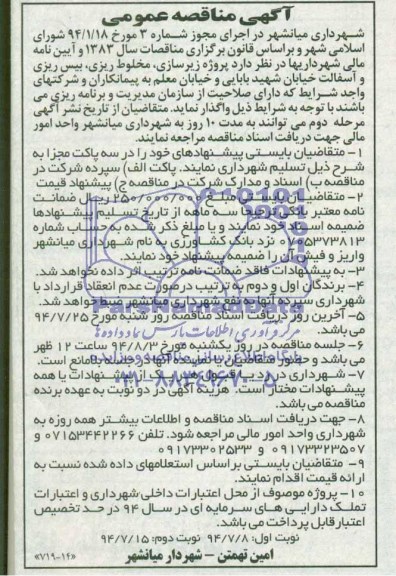 آگهی مناقصه عمومی
شهرداری میانشهر در اجرای مجوز شماره ۳ مورخ ۹۴/۱/۱۸ شورای
اسلامی شهر و براساس قانون برگزاری مناقصات سال ۱۳۸۳ و آیین نامه
مالی شهرداریها در نظر دارد پروژه زیرسازی، مخلوط ریزی، بیس ریزی
و آسفالت خیابان شهید بابایی و خیابان معلم به پیمانکاران و شرکتهای
واجد شرایط که دارای صلاحیت از سازمان مدیریت و برنامه ریزی می
باشند با توجه به شرایط ذیل واگذار نماید. متقاضیان از تاریخ نشر آگهی
مرحله دوم می توانند به مدت ۱۰ روز به شهرداری میانشهر واحد امور
مالی جهت دریافت اسناد مناقصه مراجعه نمایند.
۱- متقاضیان بایستی پیشنهادهای خود را در سه پاکت مجزا به
شرح ذیل تسلیم شهرداری نمایند. پاکت الف) سپرده شرکت در
مناقصه ب) اسناد و مدارک شرکت در مناقصه ج) پیشنهاد قیمت
۲- متقاضیان بایستی مبلغ ۲۵۰/۰۰۰/۰۰۰ ریال ضمانت
نامه معتبر بانکی ترجیحا سه ماهه از تاریخ تسلیم پیشنهادها
ضمیمه اسناد خود نمایند و یا مبلغ ذکر شده به حساب شماره
۷۰۵۳۷۳۸۱۳ نزد بانک کشاورزی به نام شهرداری میانشهر
واریز و فیش آن را ضمیمه پیشنهاد خود نمایند.
۳- به پیشنهادات فاقد ضمانت نامه ترتیب اثر داده نخواهد شد.
۴- برندگان اول و دوم به ترتیب در صورت عدم انعقاد قرارداد با
شهرداری سپرده آنها به نفع شهرداری میانشهر ضبط خواهد شد.
۵- آخرین روز دریافت اسناد مناقصه روز شنبه مورخ ۹۴/۷/۲۵
می باشد.
۶- جلسه مناقصه در روز یکشنبه مورخ ۹۴/۸/۳ ساعت ۱۲ ظهر
می باشد و حضور متقاضیان یا نماینده آنها در جلسه بلامانع است.
۷- شهرداری در رد یا قبول هر یک از پیشنهادات یا همه
پیشنهادات مختار است. هزینه آگهی در دو نوبت به عهده برنده
مناقصه می باشد.
۸- جهت دریافت اسناد مناقصه و اطلاعات بیشتر همه روزه به
شهرداری واحد امور مالی مراجعه شود. تلفن ۰۷۱۵۳۴۴۲۲۶۶ و
۰۹۱۷۳۳۲۳۵۰۷ و ۰۹۱۷۳۳۰۲۵۳۳
۹- متقاضیان بایستی براساس استعلامهای داده شده نسبت به
ارائه قیمت اقدام نمایند.
۱۰- پروژه موصوف از محل اعتبارات داخلی شهرداری و اعتبارات
تملک دارایی های سرمایه ای در سال ۹۴ در حد تخصیص
اعتبار قابل پرداخت می باشد.
نوبت اول: ۹۴/۷/۸ نوبت دوم: ۹۴/۷/۱۵
امین تهمتن - شهردار میانشهر
«۷۱۹-۱۶»
ParsNamadData
۰۲۱-۸۸۳۴۹۶۷۰-۵